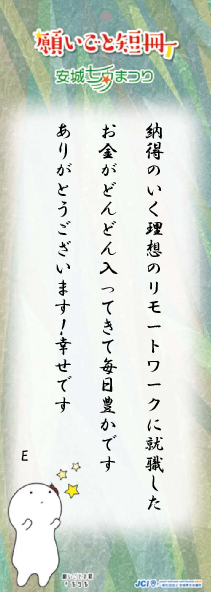 願いごと短冊
安城七夕まつり
納得のいく理想のリモートワークに就職した
お金がどんどん入ってきて毎日豊かです
ありがとうございます!幸せです
E
JCI